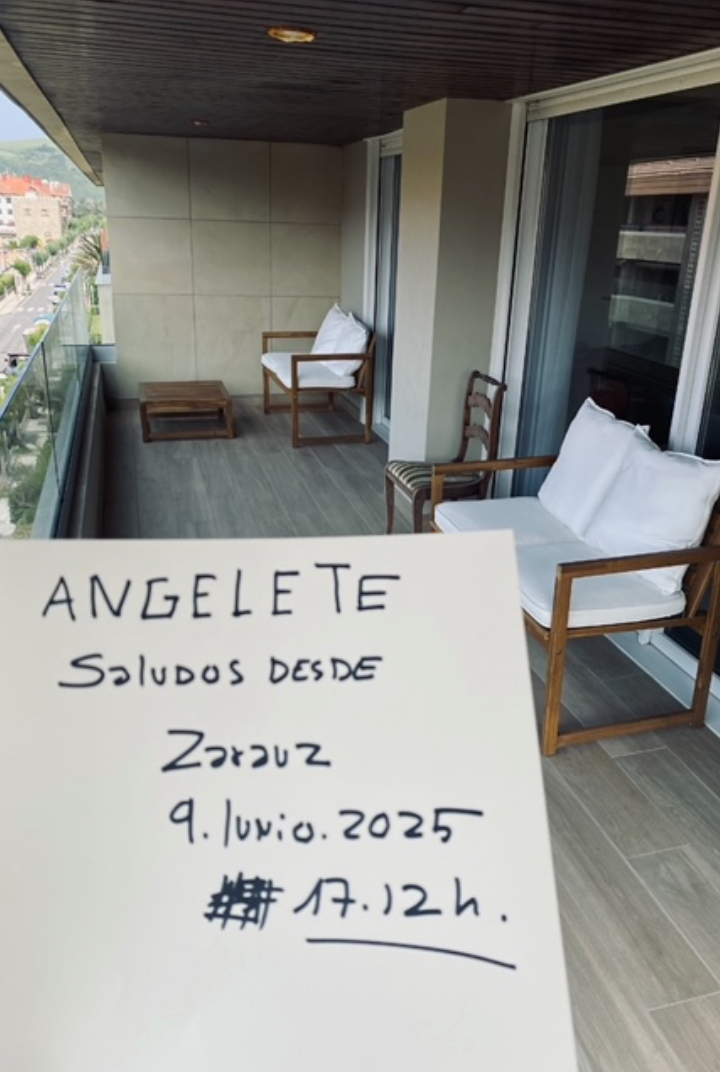 ANGELETE
Saludos DESDE
Zarauz
9.Junio.2025
17.12h.